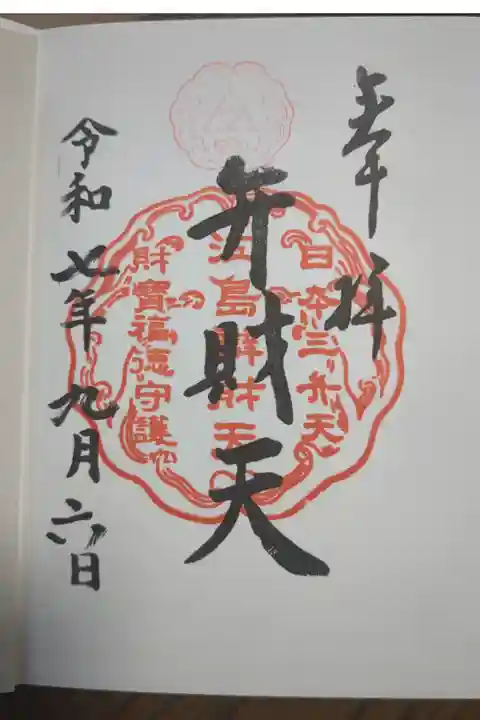 奉拝
日本三弁天
江島辨財天
財寶福徳守護
弁財天
令和七年九月六日